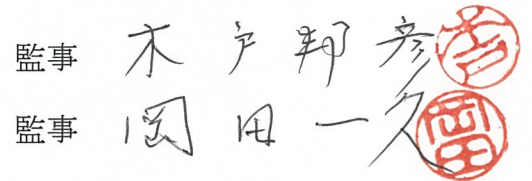 監事 木戸邦彦
監事 岡田一久
岡田